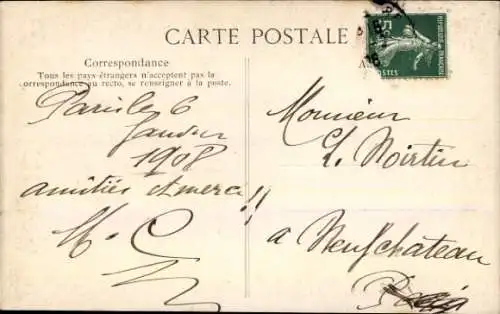 CARTE POSTALE
Correspondance
Tous les pays étrangers n'acceptent pas la
correspondance au recto, se renseigner à la poste.
Paris le 6
Janvier
1908
amitiés et merci !!
Monsieur
L. Noirtin
a Neufchateau